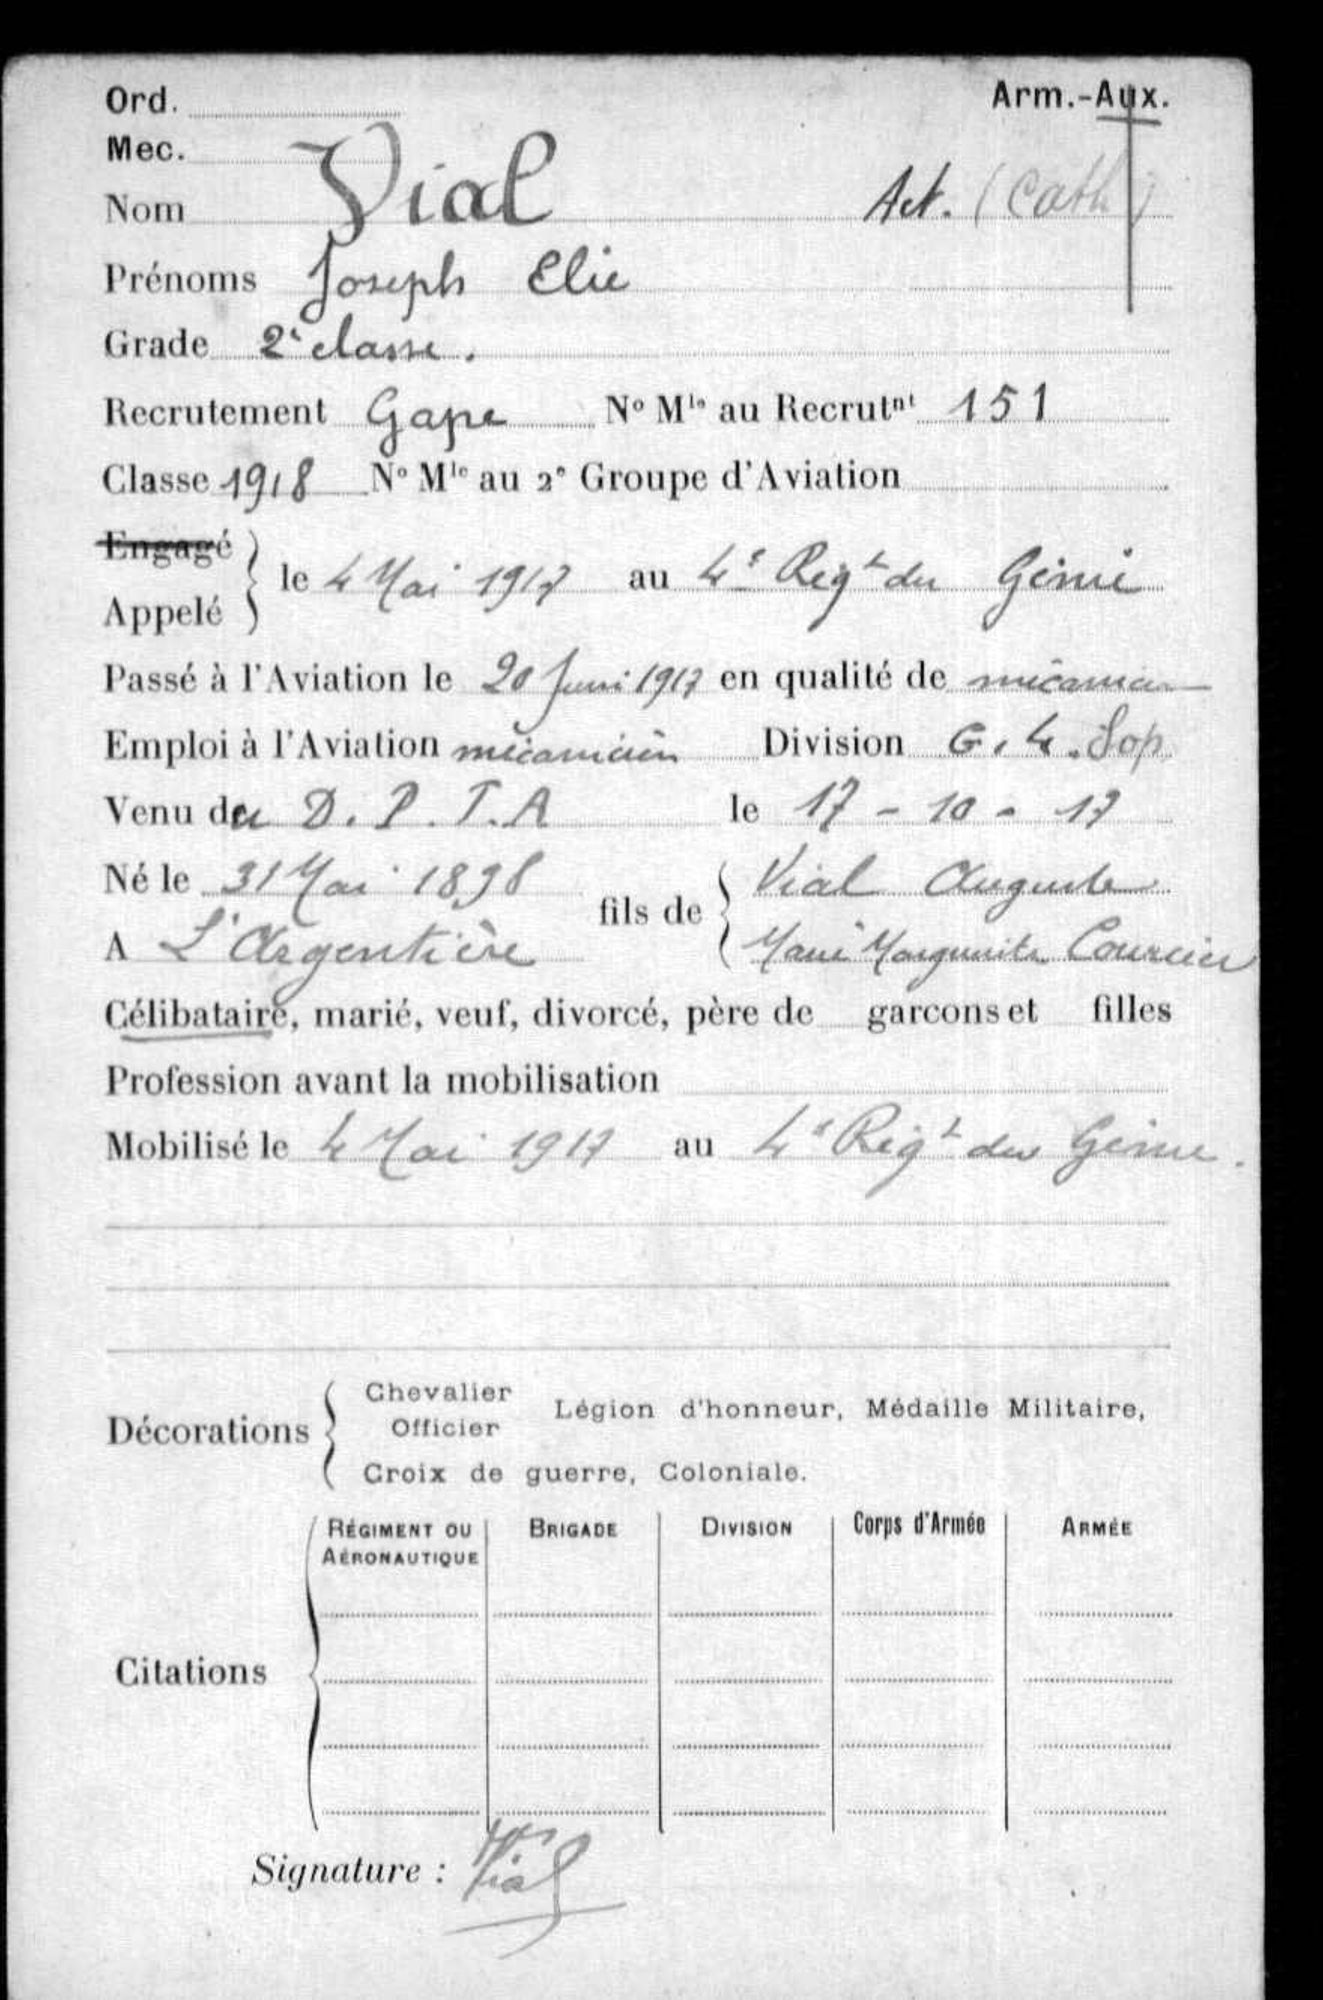 Ord.
Arm.-Aux.
Mec.
Nom Vial Act. (Cath)
Prénoms Joseph Elie
Grade 2e classe.
Recrutement Gape No Mle au Recrutnt 151
Classe 1918 No Mle au 2e Groupe d'Aviation
Engagé
Appelé } le 4 Mai 1917 au 4e Regt du Génie
Passé à l'Aviation le 20 Juin 1917 en qualité de mécanicien
Emploi à l'Aviation mécanicien Division G. 4. Sop
Venu du D. P. T. A le 17 - 10 - 17
Né le 31 Mai 1898 fils de { Vial Auguste
A L'Argentière Marie Marguerite
Célibataire, marié, veuf, divorcé, père de garcons et filles
Profession avant la mobilisation
Mobilisé le 4 Mai 1917 au 4e Régt du Génie.
Décorations { Chevalier
Officier Légion d'honneur, Médaille Militaire,
Croix de guerre, Coloniale.
RÉGIMENT OU AÉRONAUTIQUE BRIGADE DIVISION Corps d'Armée ARMÉE
Citations
Signature : Vial